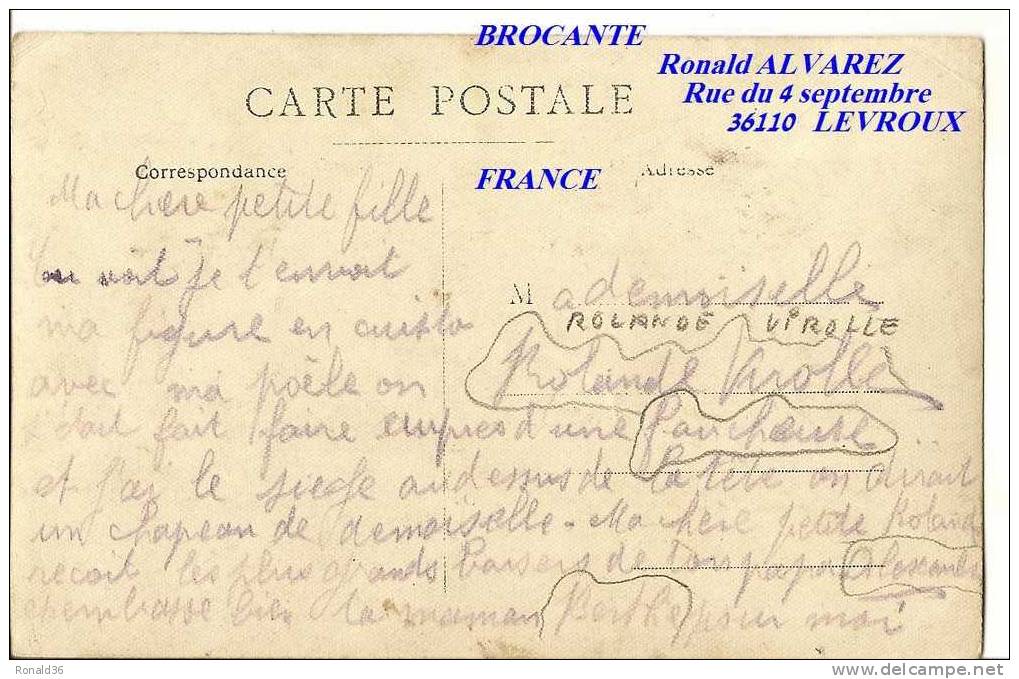 BROCANTE
Ronald ALVAREZ
Rue du 4 septembre
36110 LEVROUX
FRANCE
CARTE POSTALE
Correspondance
Adresse
Mademoiselle
ROLANDE VIROLLE
Rolande Virolle
Ma chère petite fille
voit je t'envoit
ma figure en cuisto
avec ma poêle on
s'était fait faire empres d'une Faucheuse
et j'ai le siege au dessus de la tête on dirait
un chapeau de demoiselle - Ma chère petite Roland
recoit les plus grands baisers de ton papa
embrasse bien ta maman Berthe pour moi
Ronald36
www.delcampe.net